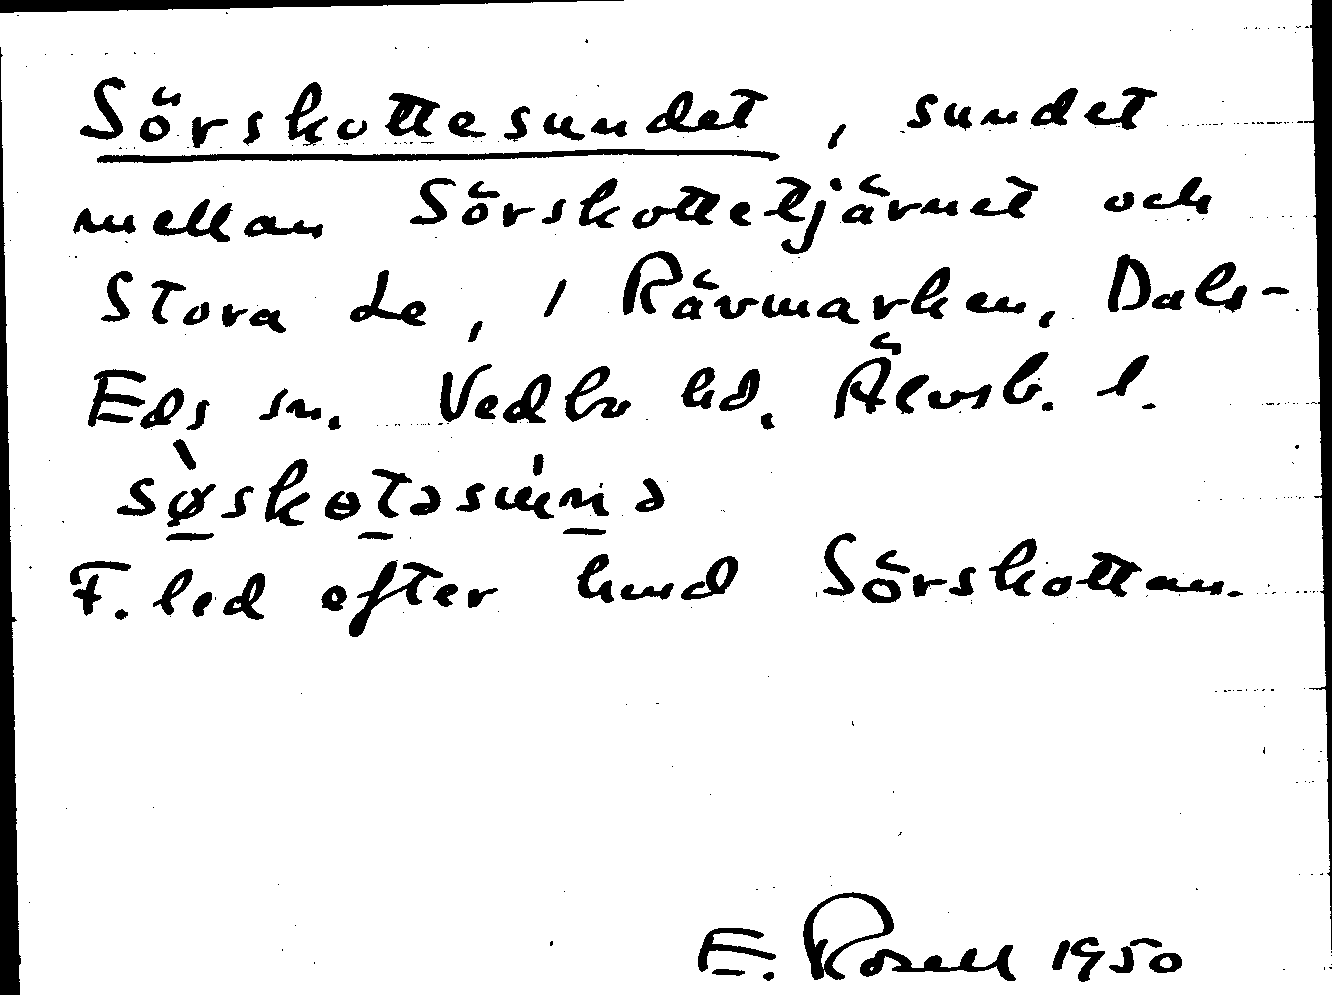 Sörskottesundet, sundet
mellan Sörskottetjärnet och
Stora Le, i Rävmarken, Dals-
Eds sn. Vedbo hd. Älvsb. l.
sø̀skɵtəsúnə
F. led efter hmd Sörskottan.
E. Rosell 1950